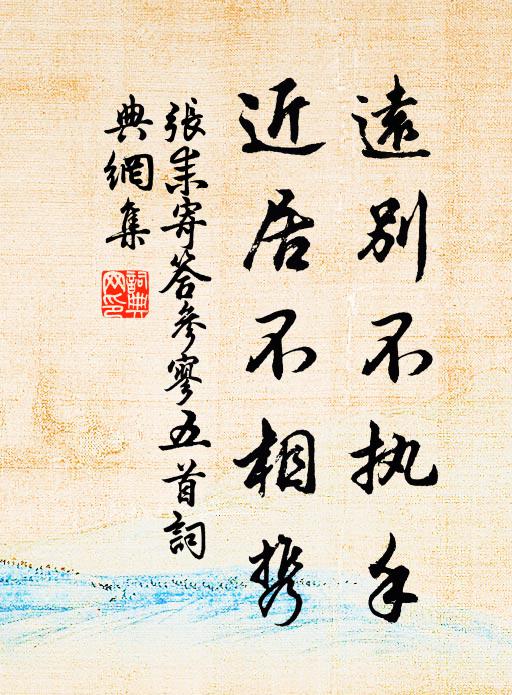 遠别不执手
近居不相携
張耒寄答參寥五首詞
典網集
詞典網印